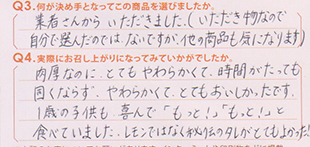 Q3.何が決め手となってこの商品を選びましたか。
業者さんからいただきました。(いただき物なので
自分で選んだのでは、ないですが、他の商品も気になります)
Q4.実際にお召し上がりになってみていかがでしたか。
肉厚なのに、とてもやわらかくて、時間がたっても
固くならず、やわらかくて、とてもおいしかったです。
1歳の子供も、喜んで「もっと!」「もっと!」と
食べていました。レモンではなくオリジナルのタレがとても上かった!